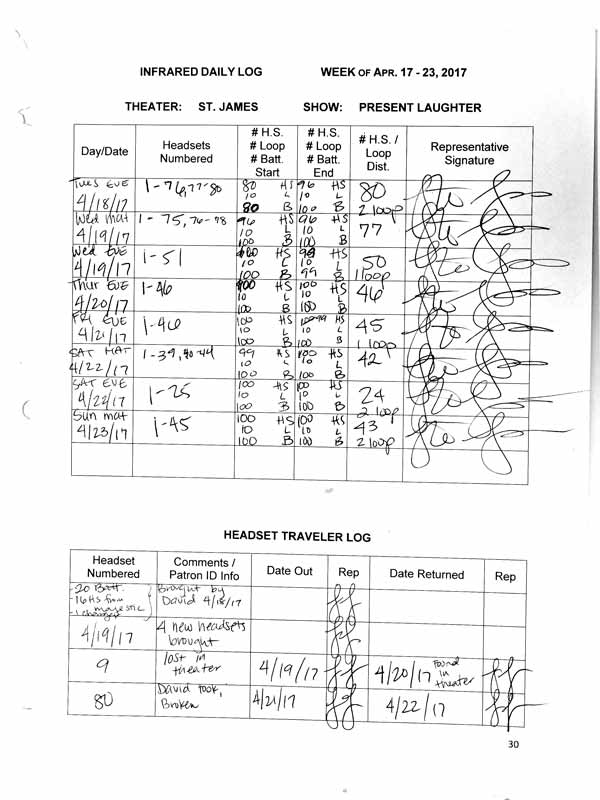 INFRARED DAILY LOG WEEK OF APR. 17 - 23, 2017
THEATER: ST. JAMES SHOW: PRESENT LAUGHTER
Day/Date Headsets Numbered # H.S. # Loop # Batt. Start # H.S. # Loop # Batt. End # H.S. / Loop Dist. Representative Signature
Tues EVE 4/18/17 1-76, 77-80 80 HS 10 L 80 B 96 HS 10 L 100 B 80 2 loop
Wed mat 4/19/17 1-75, 76-78 96 HS 10 L 100 B 96 HS 10 L 100 B 77
Wed EVE 4/19/17 1-51 HS 10 L 100 B 99 HS 10 L 99 B 50 1 loop
Thur EVE 4/20/17 1-46 100 HS 10 L 100 B 100 HS 10 L 100 B 46
FRI EVE 4/21/17 1-46 100 HS 10 L 100 B HS 10 L 100 B 45 1 loop
SAT MAT 4/22/17 1-39, 40-44 99 HS 10 L 100 B 100 HS 10 L 100 B 42
SAT EVE 4/22/17 1-25 100 HS 10 L 100 B 100 HS 10 L 100 B 24 2 loop
Sun mat 4/23/17 1-45 100 HS 10 L 100 B 100 HS 10 L 100 B 43 2 loop
HEADSET TRAVELER LOG
Headset Numbered Comments / Patron ID Info Date Out Rep Date Returned Rep
- 20 Batt. - 16 HS from majestic - 1 charger Brought by David 4/18/17 jf
4/19/17 4 new headsets brought jf
9 lost in theater 4/19/17 jf 4/20/17 found in theater jf
80 David took, Broken 4/21/17 jf 4/22/17 jf
30